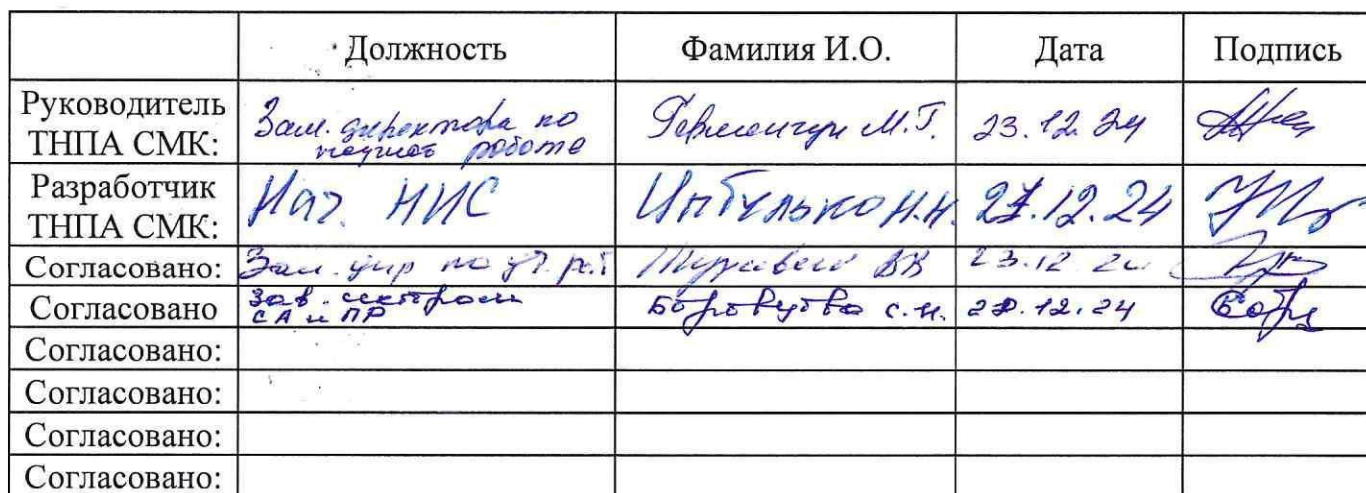 Должность Фамилия И.О. Дата Подпись
Руководитель ТНПА СМК: Зам. директора по научной работе М.Г. 23.12.24
Разработчик ТНПА СМК: Нач. НИС Цыбулько Н.Н. 27.12.24
Согласовано: Зам. дир по Журавков ВВ 23.12.24
Согласовано Зав. сектором СА и ПР С.Н. 12.24
Согласовано:
Согласовано:
Согласовано:
Согласовано: